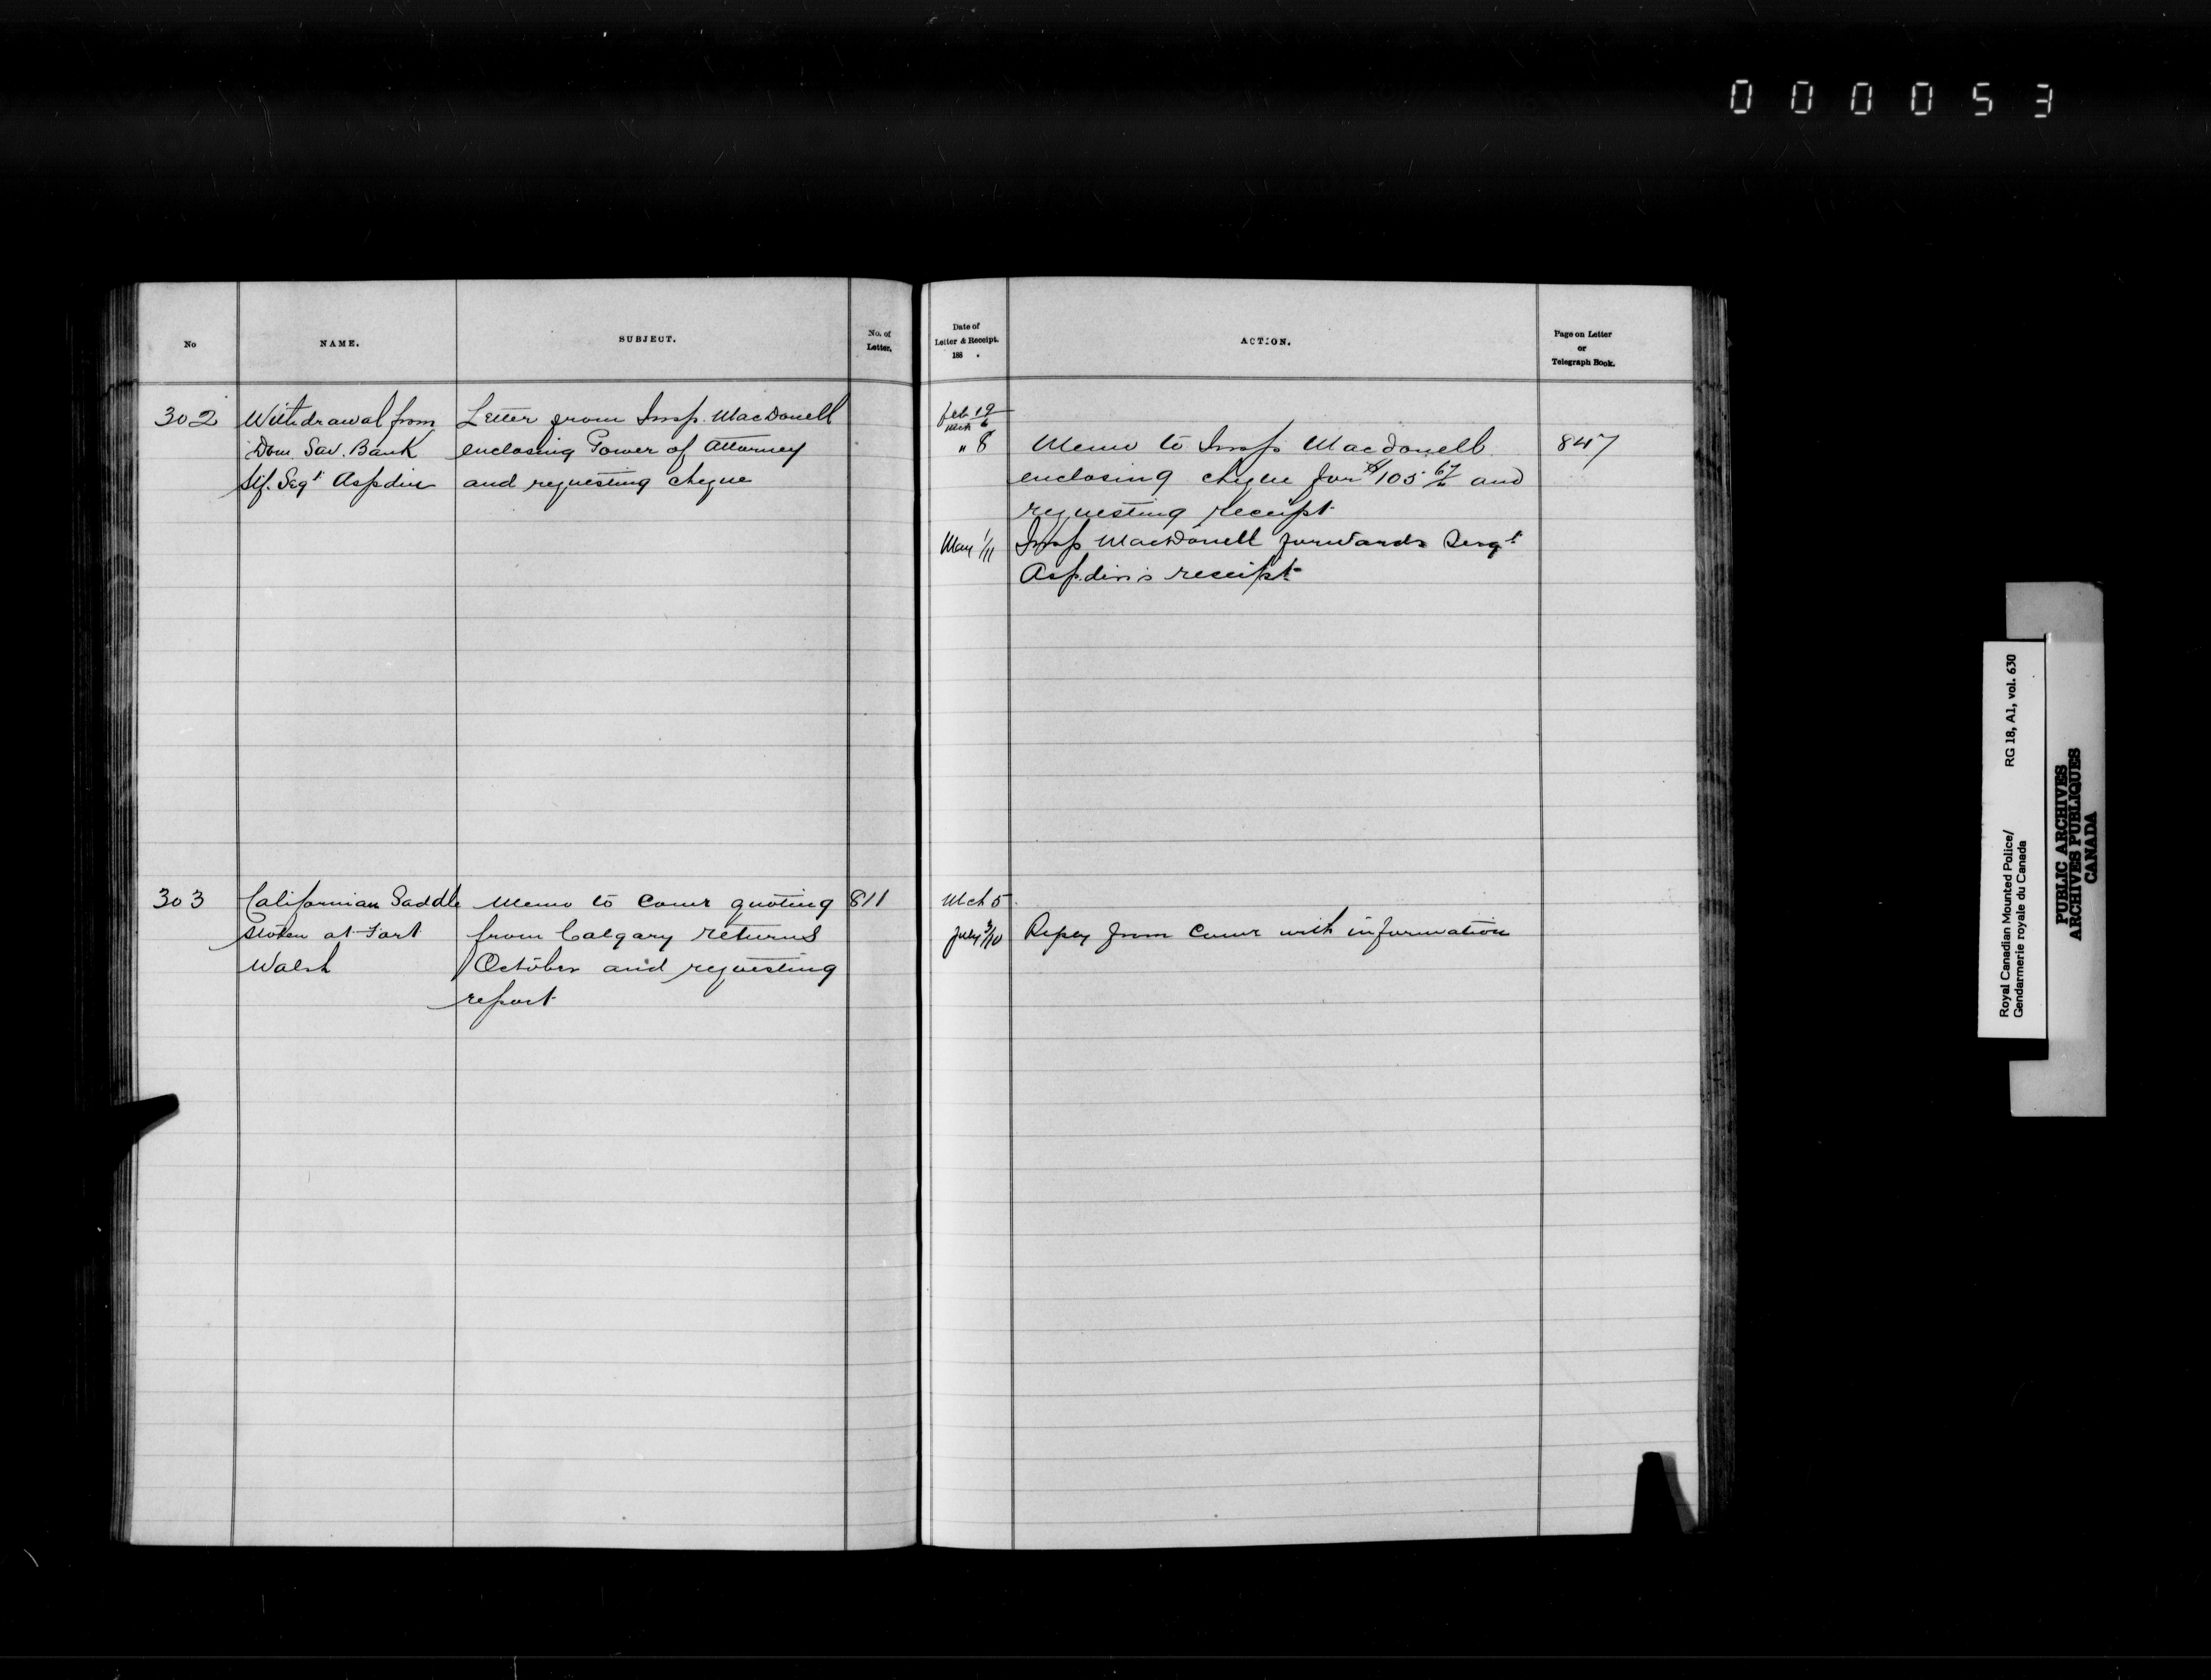 000053
No
NAME.
SUBJECT.
No. of
Letter.
302
Withdrawal from
Dom. Sav. Bank
Stf. Sergt Aspdin
Letter from Insp. MacDonell
enclosing Power of Attorney
and requesting cheque
303
Californian Saddle
stolen at Fort
Walsh
Memo to Comr quoting
from Calgary returns
October and requesting
report
811
Date of
Letter & Receipt.
188 .
ACTION.
Page on Letter
or
Telegraph Book.
Feb 19
Mch 6
" 8
Memo to Insp Macdonell
enclosing cheque for $105 67/ and
requesting receipt
847
May 1/11
Insp MacDonell forwards Sergt
Aspdin's receipt
Mch 5
July 3/10
Reply from Comr with information
Royal Canadian Mounted Police/ RG 18, A1, vol. 630
Gendarmerie royale du Canada
PUBLIC ARCHIVES
ARCHIVES PUBLIQUES
CANADA